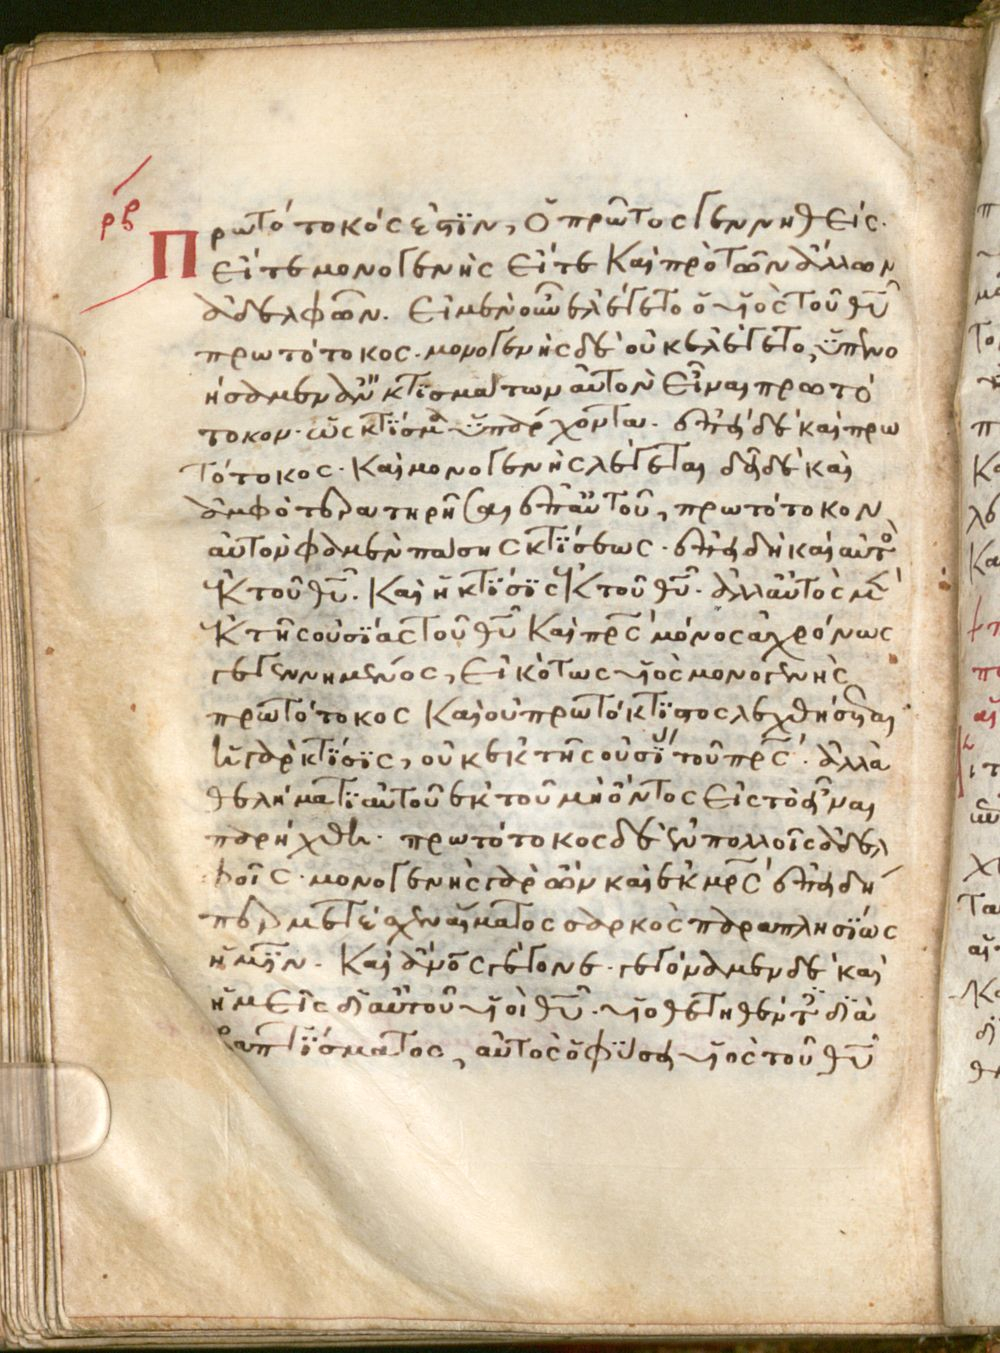 ρβ
Πρωτότοκός ἐστϊν, ὁ πρῶτος γεννηθείς·
εἴτε μονογενὴς εἴτε καὶ πρὸ τῶν ἄλλων
ἀδελφῶν. εἰ μὲν οὖν ἐλέγετο ὁ υἱὸς τοῦ θῦ
πρωτότοκος· μονογενὴς δὲ οὐκ ἐλέγετο, ὑπενο
ήσαμεν ἂν κτϊσμάτων αὐτὸν εἶναι πρωτό
τοκον· ὡς κτϊσμα ὑπάρχοντα. ἐπεὶ δὲ καὶ πρω
τότοκος· καὶ μονογενὴς λέγεται δεῖ δὲ καὶ
ἀμφότερα τηρῆσαι ἐπ αὐτοῦ, πρωτότοκον
αὐτὸν φαμὲν πάσης κτϊσεως· ἐπειδὴ καὶ αὐτὸ
ἐκ τοῦ θῦ. καὶ ἡ κτϊσϊς ἐκ τοῦ θῦ· ἀλλ αὐτὸς μὲ
ἐκ τῆς οὐσϊας τοῦ θῦ καὶ πρς μόνος ἀχρόνως
γεγεννημένος, εἰκότως υἱὸς μονογενὴς
πρωτότοκος καὶ οὐ πρωτόκτϊστος λεχθήσεται
ἡ γὰρ κτϊσϊς, οὐκ ἐκ τῆς οὐσϊ τοῦ πρς· ἀλλὰ
θελήματϊ αὐτοῦ ἐκ τοῦ μὴ ὄντος εἰς τὸ εἶναι
παρήχθη· πρωτότοκος δὲ ἐν πολλοῖς ἀδελ
φοῖς· μονογενὴς γὰρ ὢν καὶ ἐκ μρς ἐπειδή
περ μετέσχεν αἵματος σαρκὸς παραπλησϊως
ἡμϊν. καὶ ἄνος γέγονε· γεγόναμεν δὲ καὶ
ἡμεῖς δϊ αὐτοῦ υἱοὶ θῦ· υἱοθετηθέντ δϊὰ
βαπτϊσματος, αὐτὸς ὁ φύσει υἱὸς τοῦ θῦ